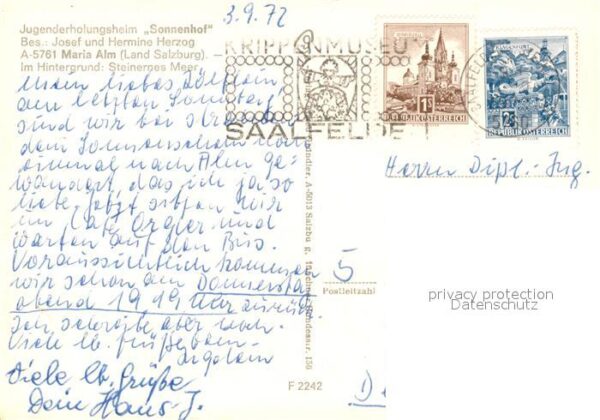 3.9.72
Jugenderholungsheim „Sonnenhof"
Bes.: Josef und Hermine Herzog
A-5761 Maria Alm (Land Salzburg).
Im Hintergrund: Steinernes Meer
KRIPPENMUSEU
SAALFELDE
1S
REPUBLIK ÖSTERREICH
REPUBLIK ÖSTERREICH
Mein liebes
am letzten Sonntag
sind wir bei
dem Sonnenschein
einmal nach Alm ge-
wandert, das ich ja so
liebe. Jetzt sitzen wir
im Café und
warten auf den Bus.
Voraussichtlich kommen
wir schon am Donnerstag
abend 19,19 Uhr zurück
Ich schreibe aber noch.
Viele lb. Grüße
Viele lb. Grüße
Dein Hans-J.
Herrn Dipl.-Ing.
5
Postleitzahl
privacy protection
Datenschutz
F 2242
D